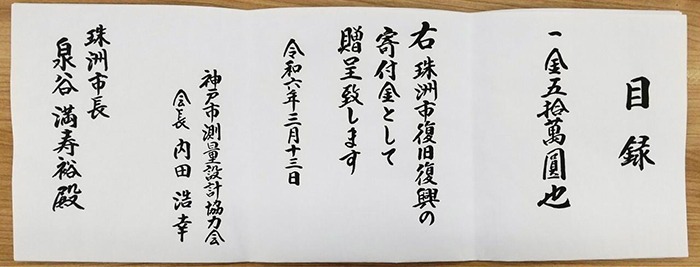 目録
一金五拾萬圓也
右珠洲市復旧復興の
寄付金として
贈呈致します
令和六年三月十三日
神戸市測量設計協力会
会長 内田 浩幸
珠洲市長
泉谷 満寿裕殿